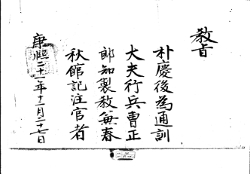 教旨
朴慶後爲通訓
大夫行兵曹正
郎知製教兼春
秋館記注官者
康熙二十一年十二月二十七日